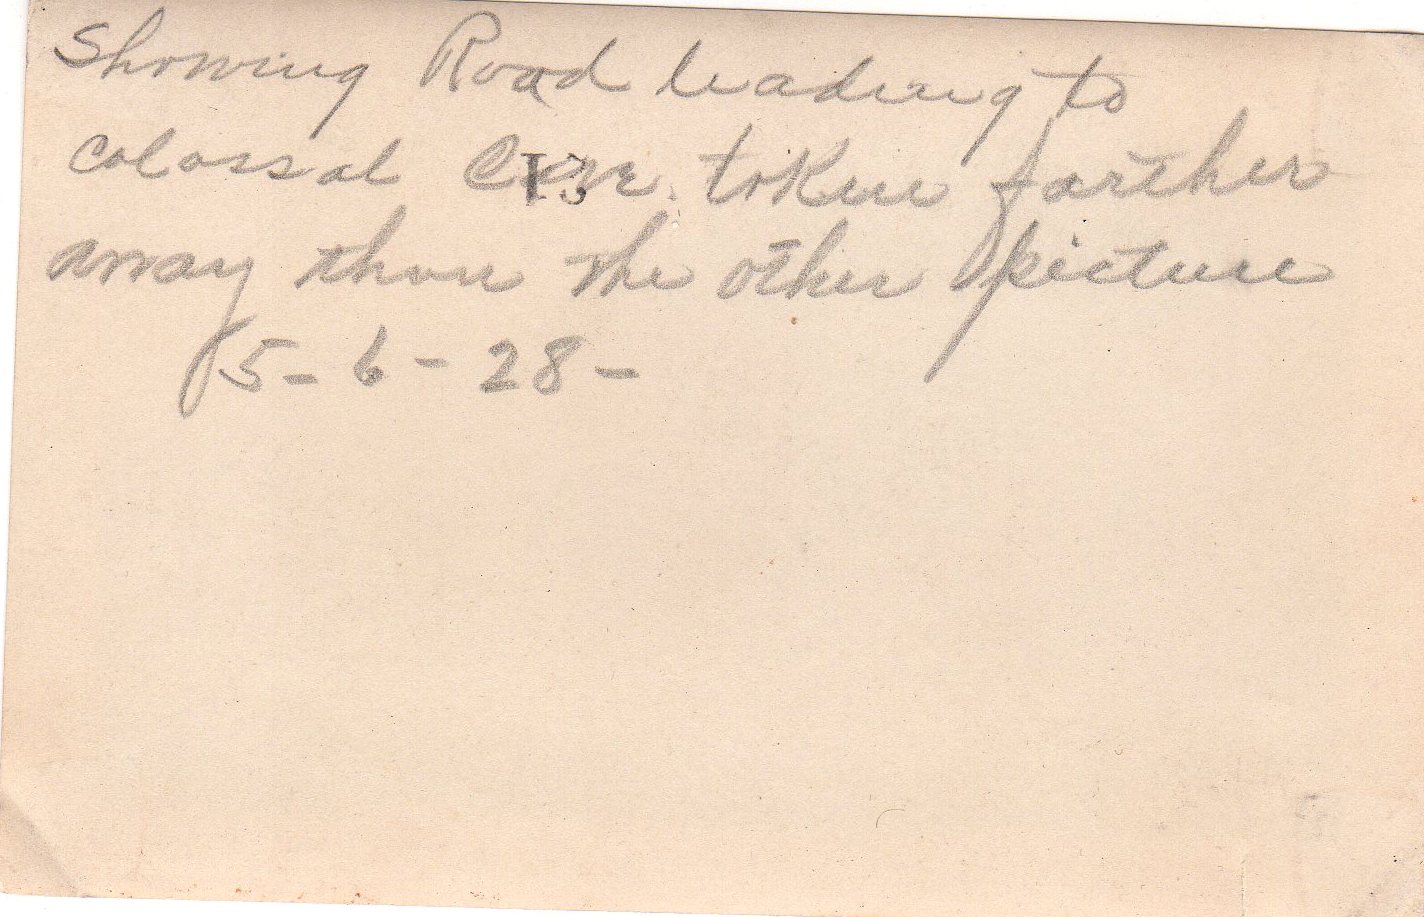 Showing Road leading to
colossal Cave. taken farther
away than the other picture
5-6-28-